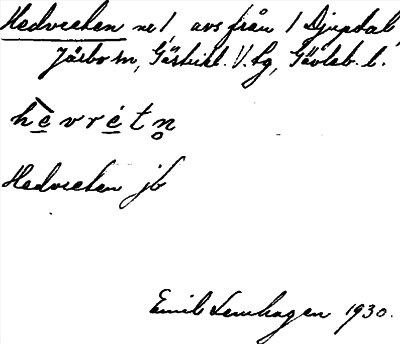 Hedvreten nr 1, avs från 1 Djupdal,
Järbo sn, Gästrikl. V. tg, Gävleb. l.
hèvrétn̥
Hedvreten jb
Emil Lenhagen 1930.